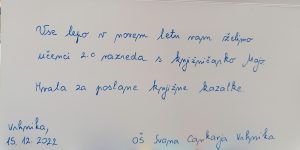 Vse lepo v novem letu vam želimo
učenci 2.c razreda s knjižničarko Jago.
Hvala za poslane knjižne kazalke.
Vrhnika,
15.12.2022
OŠ Ivana Cankarja Vrhnika